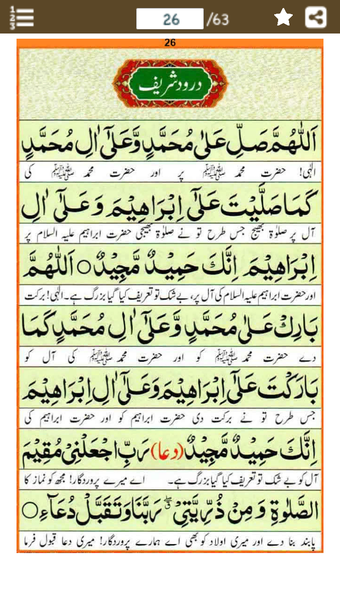 26 /63
26
درود شریف
اَللّٰهُمَّ صَلِّ عَلٰى مُحَمَّدٍ وَّعَلٰٓى اٰلِ مُحَمَّدٍ
الٰہی! حضرت محمد ﷺ پر اور حضرت محمد ﷺ کی
كَمَا صَلَّيْتَ عَلٰٓى اِبْرَاهِيْمَ وَعَلٰٓى اٰلِ
آل پر صلوٰۃ بھیج جس طرح تو نے صلوٰۃ بھیجی حضرت ابراہیم علیہ السلام پر
اِبْرَاهِيْمَ اِنَّكَ حَمِيْدٌ مَّجِيْدٌ○ اَللّٰهُمَّ
اور حضرت ابراہیم علیہ السلام کی آل پر، بے شک تو تعریف کیا گیا بزرگ ہے۔ الٰہی! برکت
بَارِكْ عَلٰى مُحَمَّدٍ وَّعَلٰٓى اٰلِ مُحَمَّدٍ كَمَا
دے حضرت محمد ﷺ کو اور حضرت محمد ﷺ کی آل کو
بَارَكْتَ عَلٰٓى اِبْرَاهِيْمَ وَعَلٰٓى اٰلِ اِبْرَاهِيْمَ
جس طرح تو نے برکت دی حضرت ابراہیم کو اور حضرت ابراہیم کی
اِنَّكَ حَمِيْدٌ مَّجِيْدٌ (دعا) رَبِّ اجْعَلْنِيْ مُقِيْمَ
آل کو بے شک تو تعریف کیا گیا بزرگ ہے۔ اے میرے پروردگار! مجھ کو نماز کا
الصَّلٰوةِ وَ مِنْ ذُرِّيَّتِيْ ۖ رَبَّنَا وَتَقَبَّلْ دُعَآءِ○
پابند بنا دے اور میری اولاد کو بھی اے ہمارے پروردگار! میری دعا قبول فرما